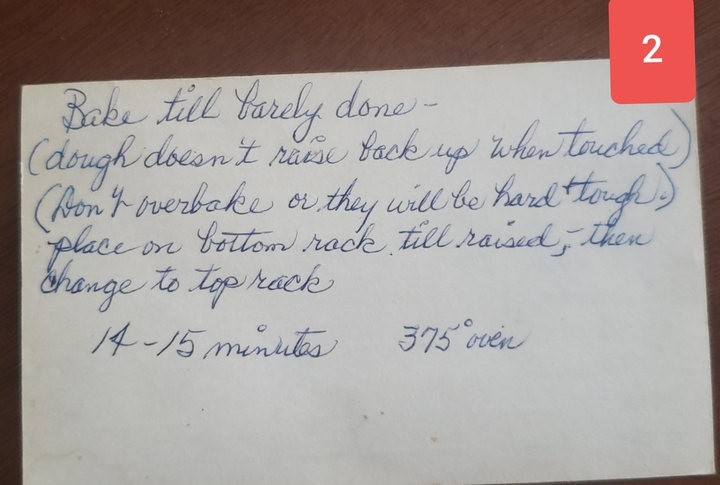 2
Bake till barely done -
(dough doesn't raise back up when touched)
(Don't overbake or they will be hard + tough.)
place on bottom rack till raised, - then
change to top rack
14-15 minutes 375° oven